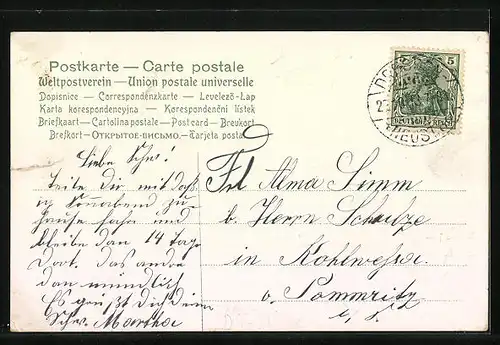 Postkarte — Carte postale
Weltpostverein — Union postale universelle
Dopisnice — Correspondenzkarte — Levelező-Lap
Karta korespondencyjna — Korespondenční lístek
Briefkaart — Cartolina postale — Postcard — Brevkort
Brefkort — ОТКРЫТОЕ ПИСЬМО. — Tarjeta postal
5
DEUTSCHES REICH
Liebe Schw!
teile Dir mit daß
ig Sonnabend zu
hause fahre und
bleibe dan 14 tage
dort. Das andre
dan mündlich
Es grüßt Dich deine
Schw. Martha
Frl Alma Simm
b. Herrn Schulze
in Kohlwesa
b. Pommritz